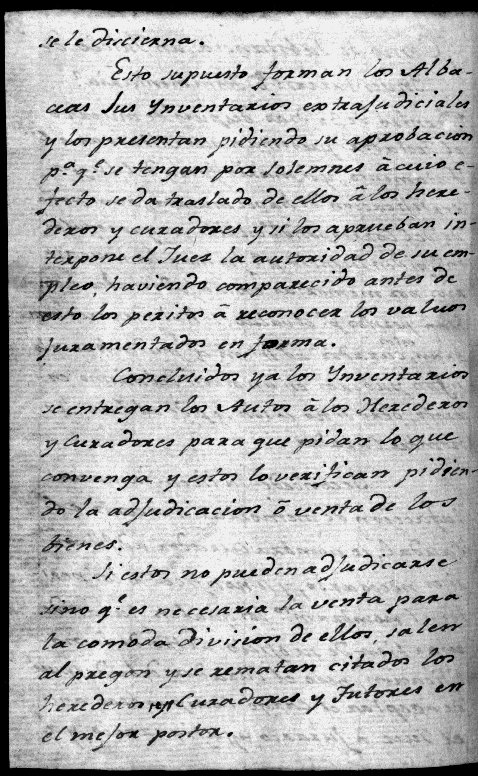 se le discierna.
Esto supuesto forman los Alba-
ceas sus Ynventarios extrajudiciales
y los presentan pidiendo su aprobacion
p.ª q.ᵉ se tengan por solemnes â cuio e-
fecto se da traslado de ellos â los here-
deros y curadores y si los aprueban in-
terpone el Juez la autoridad de su em-
pleo, haviendo comparecido antes de
esto los peritos â reconocer los valuos
juramentados en forma.
Concluidos ya los Ynventarios
se entregan los Autos â los Herederos
y Curadores para que pidan lo que
convenga y estos lo verifican pidien-
do la adjudicacion ô venta de los
bienes.
Si estos no pueden adjudicarse
sino q.ᵉ es necesaria la venta para
la comoda division de ellos, salen
al pregon y se rematan citados los
herederos Curadores y Tutores en
el mejor postor.